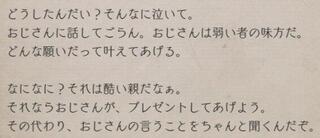 どうしたんだい?そんなに泣いて。
おじさんに話してごうん。おじさんは弱い者の味方だ。
どんな願いだって叶えてあげる。
なになに?それは酷い親だなぁ。
それならおじさんが、プレゼントしてあげよう。
その代わり、おじさんの言うことをちゃんと聞くんだぞ。